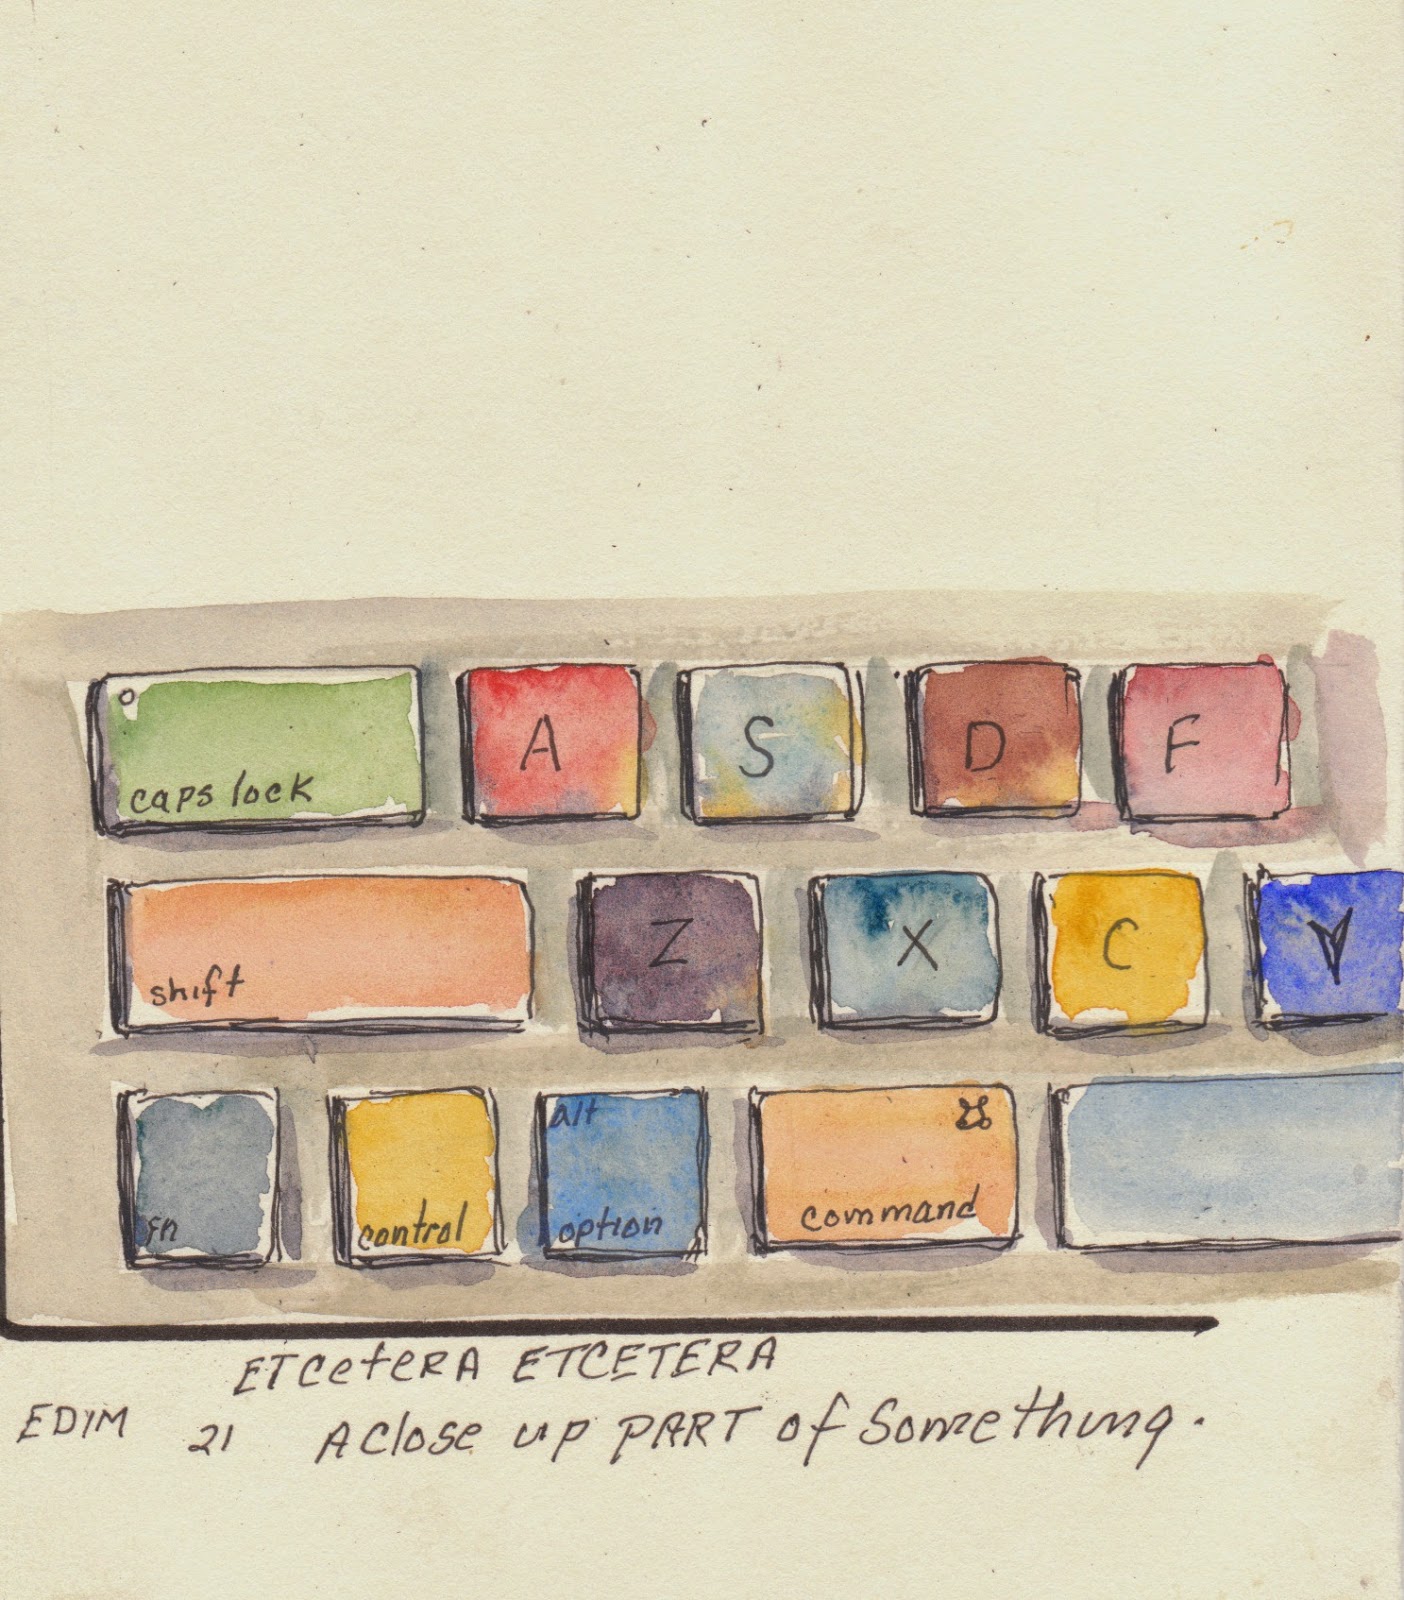 caps lock A S D F
shift Z X C V
alt ⌘
fn control option command
ETCetERA ETCETERA
EDIM 21 A Close up PART of Something.